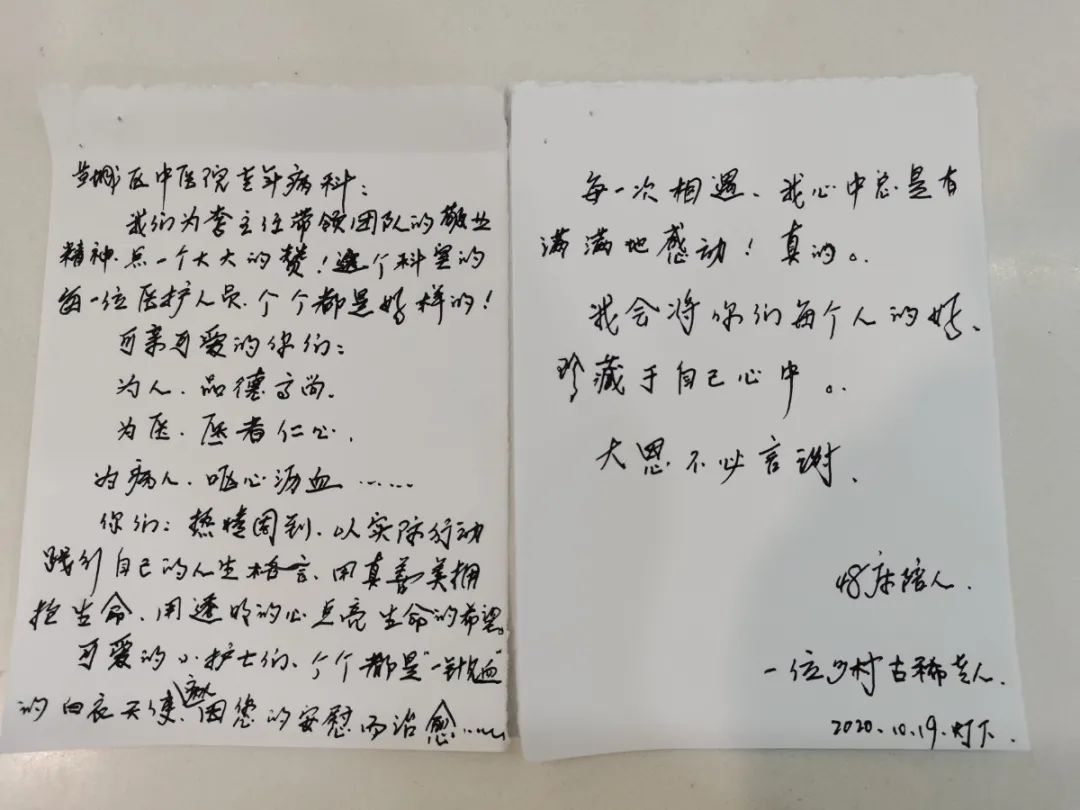 区中医院老年病科：
我们为李主任带领团队的敬业
精神.点一个大大的赞！这个科室的
每一位医护人员.个个都是好样的！
可亲可爱的你们：
为人.品德高尚.
为医.医者仁心.
为病人.呕心沥血……
你们：热情周到.以实际行动
践行自己的人生格言、用真善美拥
抱生命、用透明的心点亮生命的希望。
可爱的小护士们、个个都是“一针见血”
的白衣天使、病人因您的安慰而治愈……
每一次相遇、我心中总是有
满满地感动！真的。
我会将你们每个人的好、
珍藏于自己心中。
大恩不必言谢.
48床陪人.
一位乡村古稀老人.
2020.10.19.灯下.